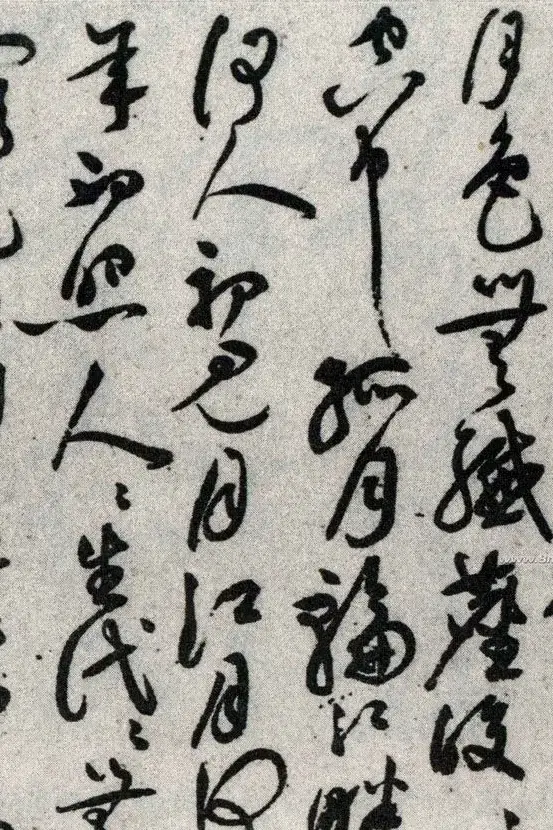 月色無纖塵皎々
空中孤月輪江畔
何人初見月江月何
年初照人々生代々無